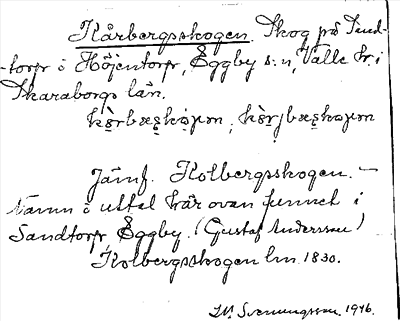 Kårbergsskogen. Skog på Sand-
-torp i Höjentorp, Eggby s:n, Valle hr i
Skaraborgs län.
Jämf. Kolbergsskogen. —
Namn o uttal här ovan funnet i
Sandtorp, Eggby. (Gustaf Andersson)
Kolbergsskogen lm. 1830.
Svenungsson. 1916.